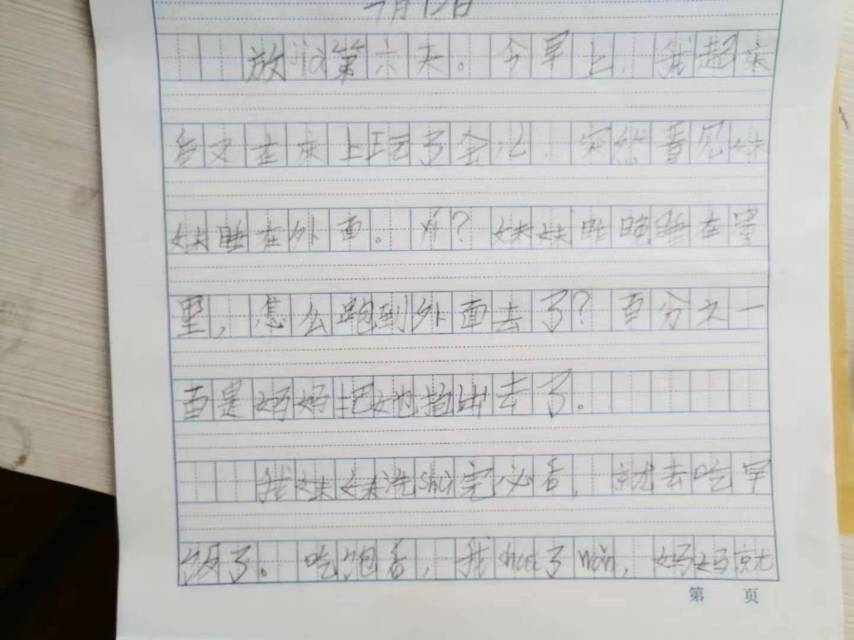 月12日
放jià第六天。今早上,我起床
后又在床上玩了会儿,突然看见妹
妹睡在外面。为?妹妹昨晚睡在屋
里,怎么跑到外面去了?百分之一
百是妈妈把她抱出去了。
我妹妹洗shù完必后,就去吃早
饭了。吃饱后,我shuā了wǎn,妈妈就
第 页